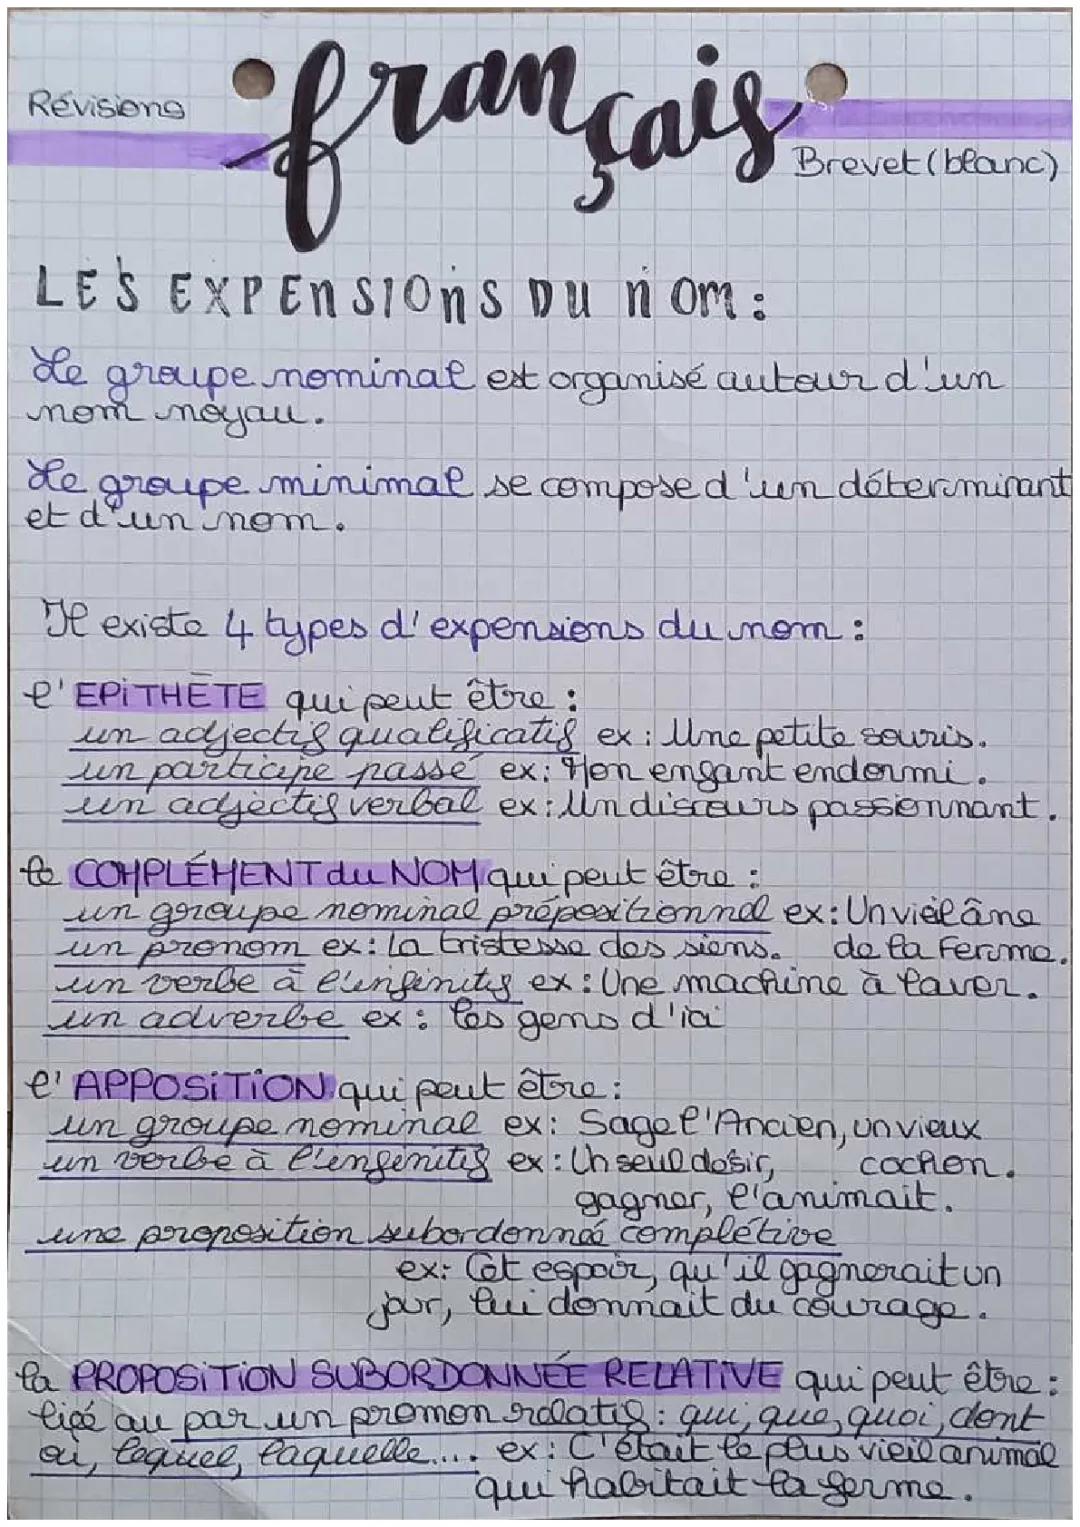 français
Révisions
Brevet (blanc)
LES EXPENSIONS DU NOM :
Le groupe nominal est organisé autour d'un
nom noyau.
Le groupe minimal se compose d'un déterminant
et d'un nom.
Il existe 4 types d'expensions du nom :
l'EPITHÈTE qui peut être :
un adjectif qualificatif ex : Une petite souris.
un participe passé ex : Mon enfant endormi.
un adjectif verbal ex : Un discours passionnant.
le COMPLÉMENT du NOM qui peut être :
un groupe nominal prépositionnel ex : Un vieil âne
de la ferme.
un pronom ex : La tristesse des siens.
un verbe à l'infinitif ex : Une machine à laver.
un adverbe ex : les gens d'ici
l'APPOSITION qui peut être :
un groupe nominal ex : Sage l'Ancien, un vieux
cochon.
un verbe à l'infinitif ex : Un seul désir,
gagner, l'animait.
une proposition subordonnée complétive
ex : Cet espoir, qu'il gagnerait un
jour, lui donnait du courage.
la PROPOSITION SUBORDONNÉE RELATIVE qui peut être :
lié au par un pronom relatif : qui, que, quoi, dont
où, lequel, laquelle.... ex : C'était le plus vieil animal
qui habitait la ferme.